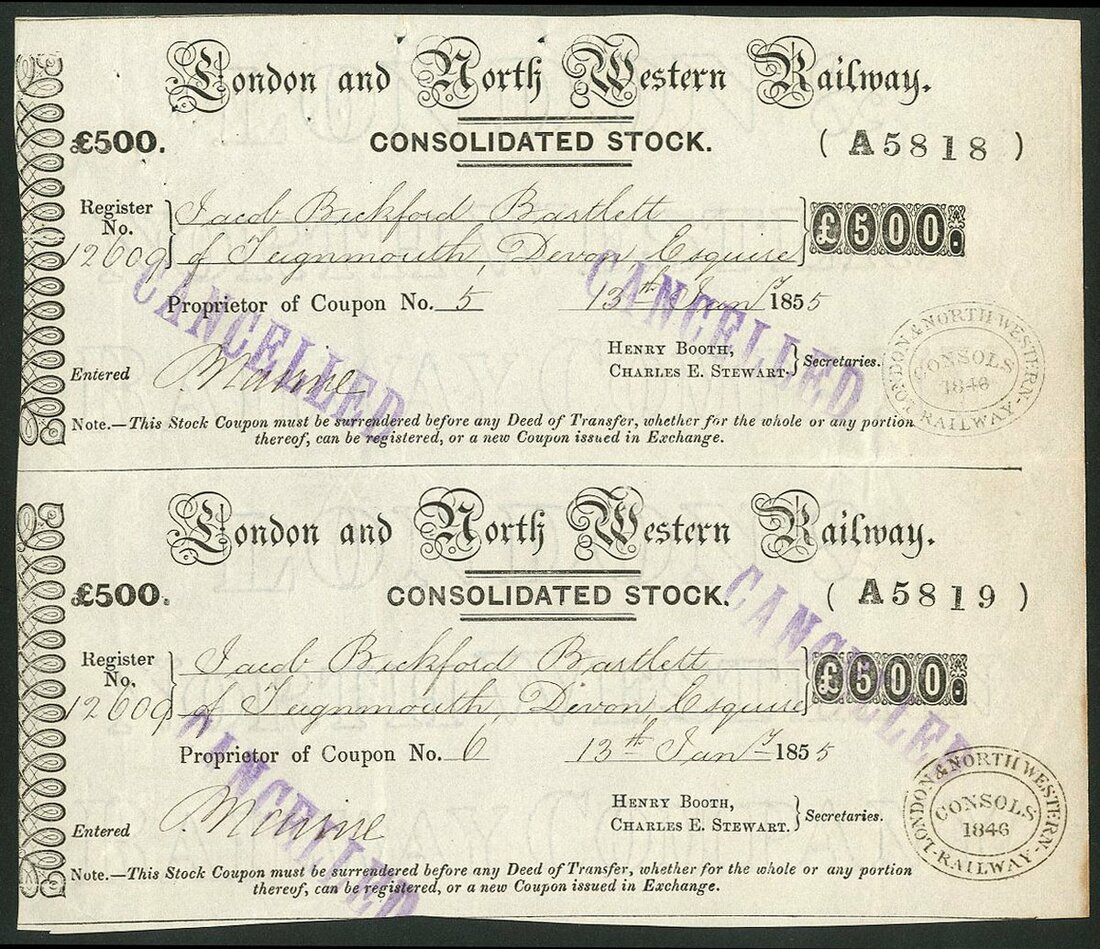 London and North Western Railway.
£500.
CONSOLIDATED STOCK.
( A5818 )
Register No. 12609
Jacob Bickford Bartlett
of Teignmouth, Devon, Esquire
£500.
Proprietor of Coupon No. 5 13th Jany 1855
CANCELLED
CANCELLED
Entered
HENRY BOOTH,
CHARLES E. STEWART. } Secretaries.
LONDON & NORTH WESTERN RAILWAY
CONSOLS
1846
Note.—This Stock Coupon must be surrendered before any Deed of Transfer, whether for the whole or any portion
thereof, can be registered, or a new Coupon issued in Exchange.
London and North Western Railway.
£500.
CONSOLIDATED STOCK.
( A5819 )
Register No. 12609
Jacob Bickford Bartlett
of Teignmouth, Devon, Esquire
£500.
Proprietor of Coupon No. 6 13th Jany 1855
CANCELLED
CANCELLED
Entered
HENRY BOOTH,
CHARLES E. STEWART. } Secretaries.
LONDON & NORTH WESTERN RAILWAY
CONSOLS
1846
Note.—This Stock Coupon must be surrendered before any Deed of Transfer, whether for the whole or any portion
thereof, can be registered, or a new Coupon issued in Exchange.